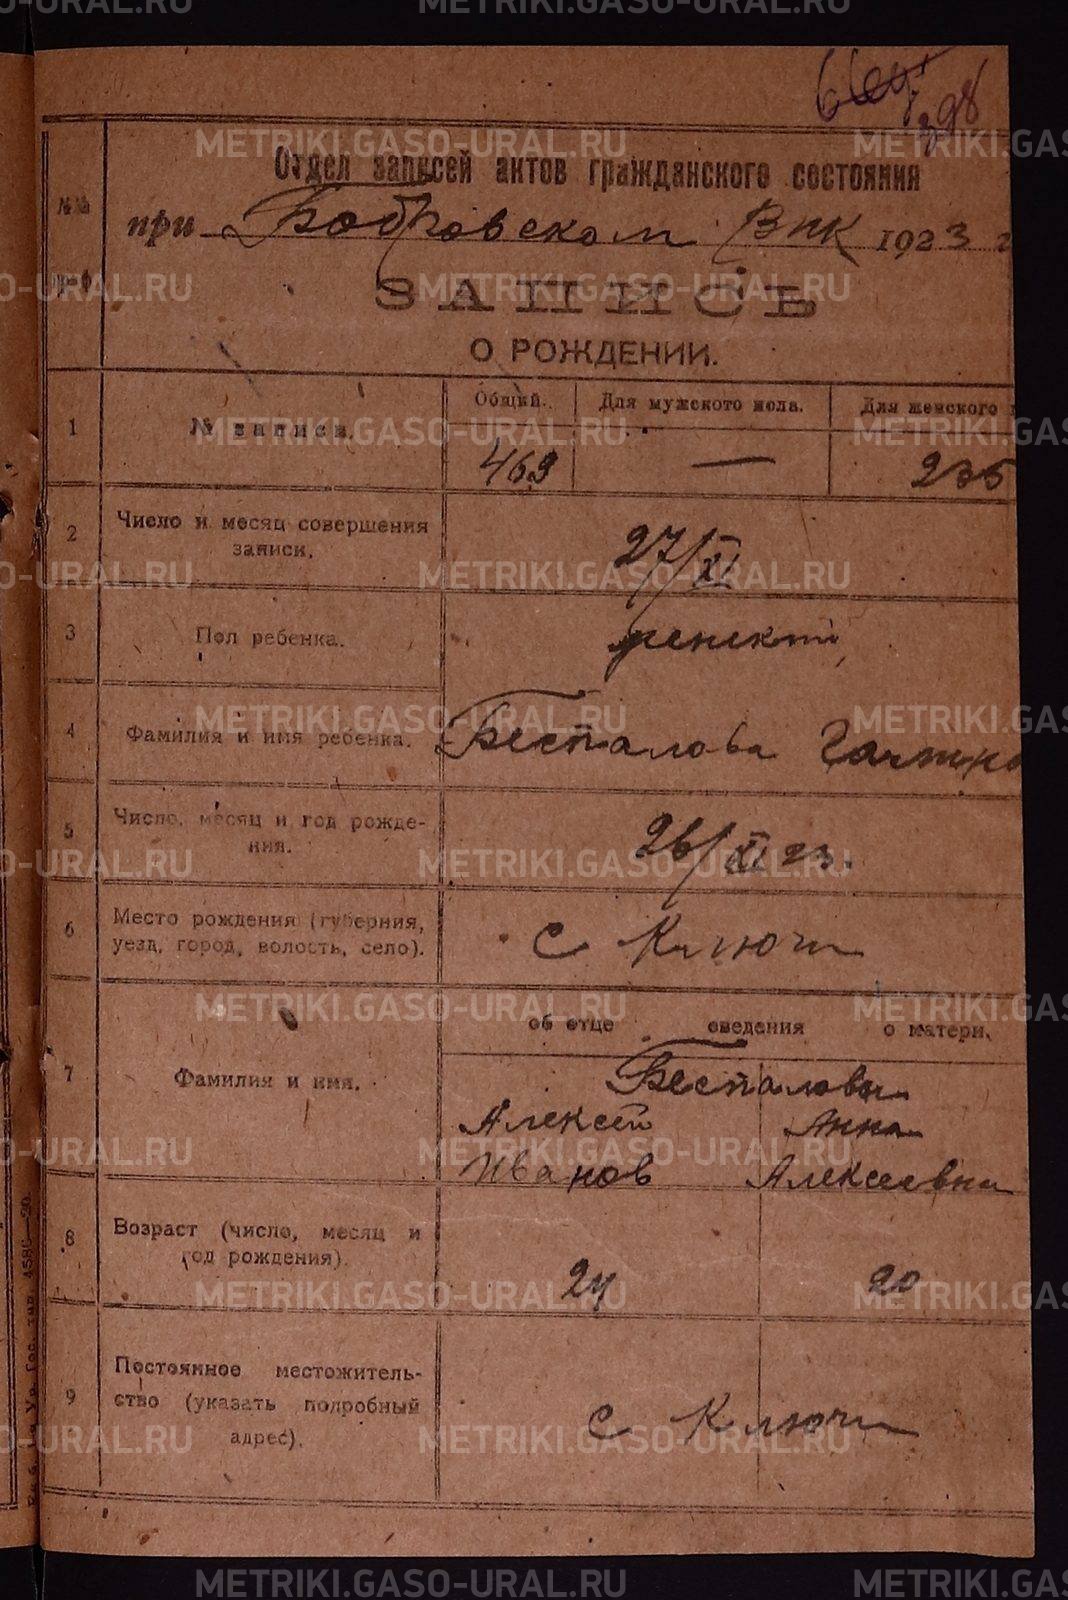 664 398
Отдел записей актов гражданского состояния
№№
при Бобровском ВИК 1923 г
ЗАПИСЬ
О РОЖДЕНИИ.
Общий. Для мужского пола. Для женского
1 № записи. 469 — 235
2 Число и месяц совершения
записи. 27/XI
3 Пол ребенка. женский
4 Фамилия и имя ребенка. Беспалова Галина
5 Число, месяц и год рожде-
ния. 26/XI 23.
6 Место рождения (губерния,
уезд, город, волость, село). с Ключи
об отце сведения о матери.
7 Фамилия и имя. Беспаловы
Алексей Анна
Иванов Алексеевна
8 Возраст (число, месяц и
год рождения). 24 20
9 Постоянное местожитель-
ство (указать подробный
адрес). с Ключи
METRIKI.GASO-URAL.RU